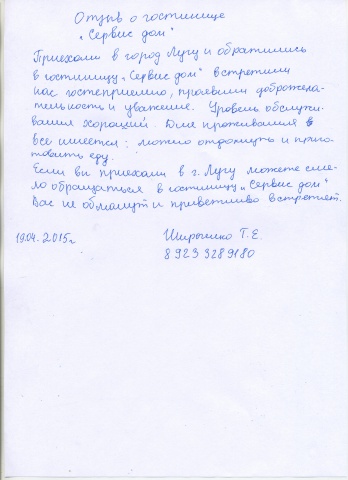 Отзыв о гостинице
„Сервис дом"
Приехали в город Лугу и обратились
в гостиницу „Сервис дом" встретили
нас гостеприимно, проявили доброжела-
тельность и уважение. Уровень обслужи-
вания хороший. Для проживания
все имеется: можно отдохнуть и приго-
товить еду.
Если ви приехали в г. Лугу можете сме-
ло обращаться в гостиницу „Сервис дом"
Вас не обманут и приветливо встретят.
19.04.2015г
Т.Е.
8 923 3289180